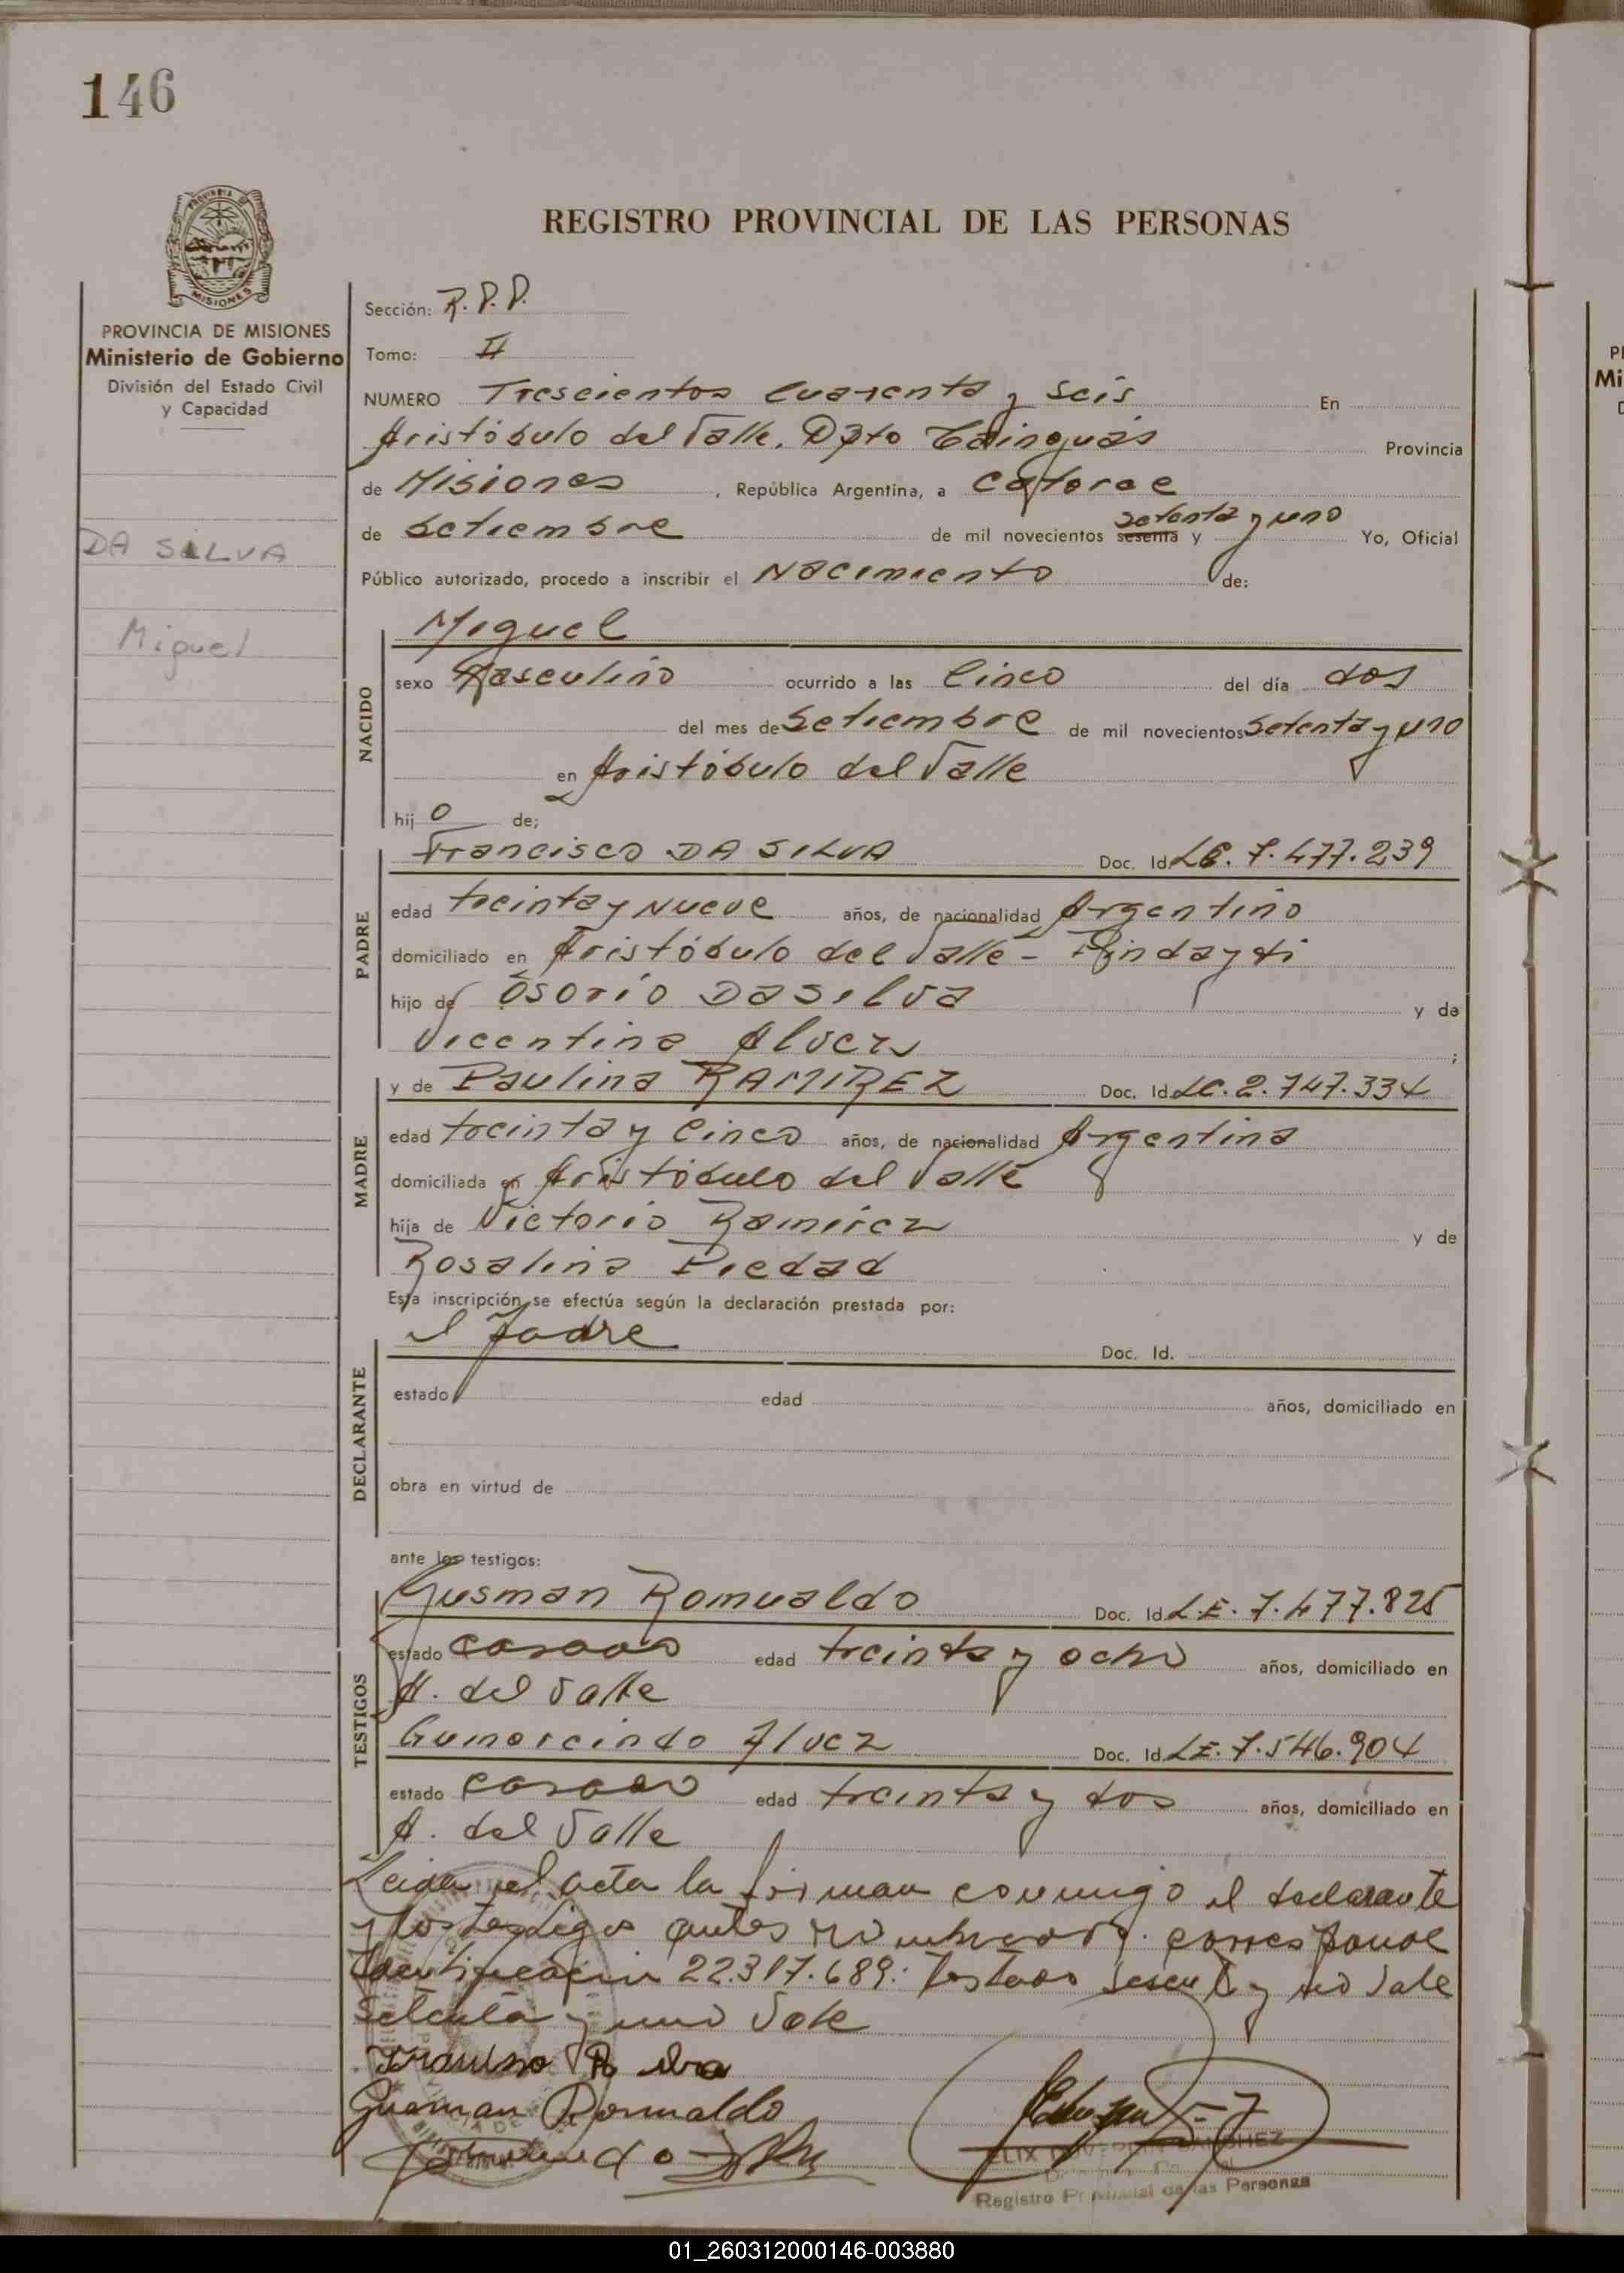 146
PROVINCIA DE MISIONES
Ministerio de Gobierno
División del Estado Civil
y Capacidad
DA SILVA
Miguel
REGISTRO PROVINCIAL DE LAS PERSONAS
Sección: R.P.P.
Tomo: II
NUMERO Trescientos Cuarenta y seis En
Aristóbulo del Valle, Dpto Cainguás Provincia
de Misiones, República Argentina, a Catorce
de Setiembre de mil novecientos sesenta y setenta y uno Yo, Oficial
Público autorizado, procedo a inscribir el Nacimiento de:
NACIDO
Miguel
sexo Masculino ocurrido a las Cinco del día dos
del mes de Setiembre de mil novecientos Setenta y uno
en Aristóbulo del Valle
hij o de;
PADRE
Francisco DA SILVA Doc. Id. LE. 7.477.239
edad treinta y Nueve años, de nacionalidad Argentino
domiciliado en Aristóbulo del Valle - Pindayti
hijo de Osorio Da Silva y de
Vicentina Alvez ;
MADRE
y de Paulina RAMIREZ Doc. Id. LC. 2.747.334
edad treinta y Cinco años, de nacionalidad Argentina
domiciliada en Aristóbulo del Valle
hija de Victorio Ramirez y de
Rosalina Piedad
Esta inscripción se efectúa según la declaración prestada por:
DECLARANTE
el Padre Doc. Id.
estado edad años, domiciliado en
obra en virtud de
ante los testigos:
TESTIGOS
Gusman Romualdo Doc. Id. L.E. 7.477.825
estado casado edad treinta y ocho años, domiciliado en
A. del Valle
Gumorcindo Alvez Doc. Id. LE. 7.546.904
estado casado edad treinta y dos años, domiciliado en
A. del Valle
Leida el acta la firman conmigo el declarante
y los testigos antes nombrados. corresponde
Identificación 22.317.689: testado sesenta y no vale
setenta y uno Vale
Gusman Romualdo
SANCHEZ
Registro Provincial de las Personas
01_260312000146-003880